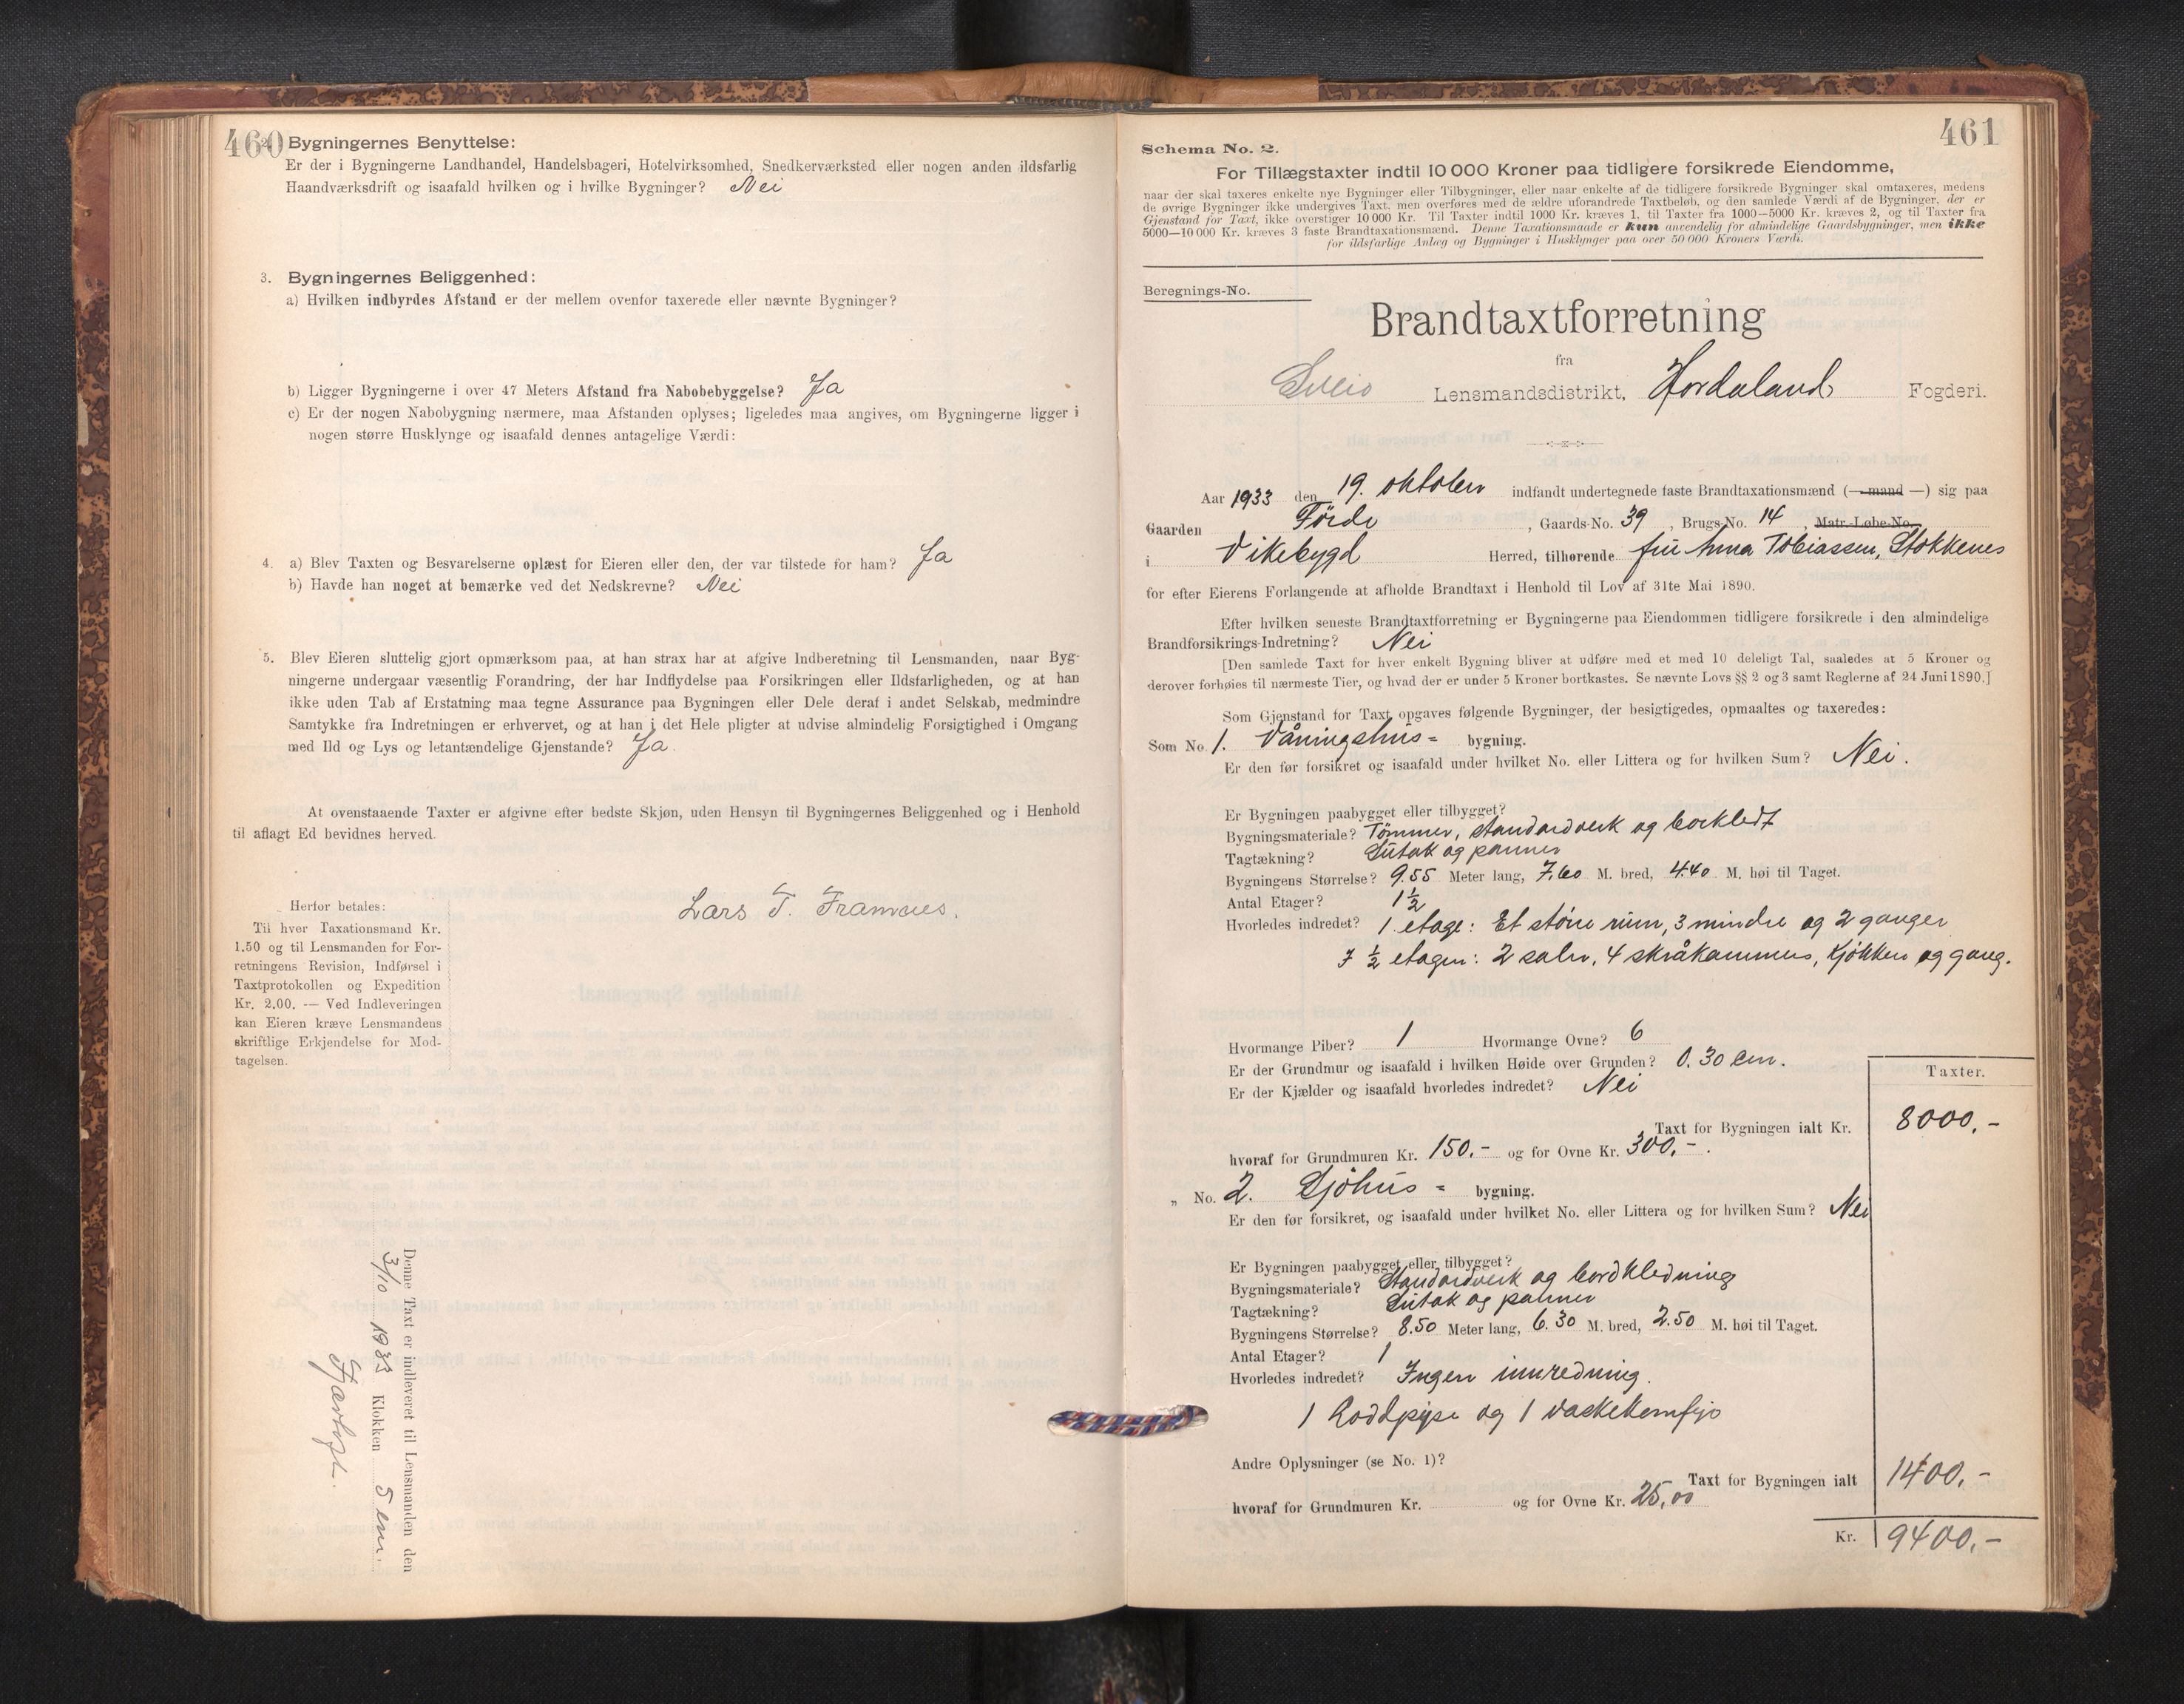 460
2. Bygningernes Benyttelse:
Er der i Bygningerne Landhandel, Handelsbageri, Hotelvirksomhed, Snedkerværksted eller nogen anden ildsfarlig
Haandværksdrift og isaafald hvilken og i hvilke Bygninger? Nei
3. Bygningernes Beliggenhed:
a) Hvilken indbyrdes Afstand er der mellem ovenfor taxerede eller nævnte Bygninger?
b) Ligger Bygningerne i over 47 Meters Afstand fra Nabobebyggelse? Ja
c) Er der nogen Nabobygning nærmere, maa Afstanden oplyses; ligeledes maa angives, om Bygningerne ligger i
nogen større Husklynge og isaafald dennes antagelige Værdi:
4. a) Blev Taxten og Besvarelserne oplæst for Eieren eller den, der var tilstede for ham? Ja
b) Havde han noget at bemærke ved det Nedskrevne? Nei
5. Blev Eieren sluttelig gjort opmærksom paa, at han strax har at afgive Indberetning til Lensmanden, naar Byg-
ningerne undergaar væsentlig Forandring, der har Indflydelse paa Forsikringen eller Ildsfarligheden, og at han
ikke uden Tab af Erstatning maa tegne Assurance paa Bygningen eller Dele deraf i andet Selskab, medmindre
Samtykke fra Indretningen er erhvervet, og at han i det Hele pligter at udvise almindelig Forsigtighed i Omgang
med Ild og Lys og letantændelige Gjenstande? Ja.
At ovenstaaende Taxter er afgivne efter bedste Skjøn, uden Hensyn til Bygningernes Beliggenhed og i Henhold
til aflagt Ed bevidnes herved.
Lars T. Framnes.
Herfor betales:
Til hver Taxationsmand Kr.
1.50 og til Lensmanden for For-
retningens Revision, Indførsel i
Taxtprotokollen og Expedition
Kr. 2.00. — Ved Indleveringen
kan Eieren kræve Lensmandens
skriftlige Erkjendelse for Mod-
tagelsen.
Denne Taxt er indleveret til Lensmanden den
3/10 1933 Klokken 5 em.
461
Schema No. 2.
For Tillægstaxter indtil 10 000 Kroner paa tidligere forsikrede Eiendomme,
naar der skal taxeres enkelte nye Bygninger eller Tilbygninger, eller naar enkelte af de tidligere forsikrede Bygninger skal omtaxeres, medens
de øvrige Bygninger ikke undergives Taxt, men overføres med de ældre uforandrede Taxtbeløb, og den samlede Værdi af de Bygninger, der er
Gjenstand for Taxt, ikke overstiger 10 000 Kr. Til Taxter indtil 1000 Kr. kræves 1, til Taxter fra 1000—5000 Kr. kræves 2, og til Taxter fra
5000—10 000 Kr. kræves 3 faste Brandtaxationsmænd. Denne Taxationsmaade er kun anvendelig for almindelige Gaardsbygninger, men ikke
for ildsfarlige Anlæg og Bygninger i Husklynger paa over 50 000 Kroners Værdi.
Beregnings-No.
Brandtaxtforretning
fra
Sveio Lensmandsdistrikt, Hordaland Fogderi.
Aar 1933 den 19. oktober indfandt undertegnede faste Brandtaxationsmænd (—mand —) sig paa
Gaarden Förde, Gaards-No. 39, Brugs-No. 14, Matr.-Løbe-No.
i Vikebygd Herred, tilhørende fru Anna Tobiassen, Stokkenes
for efter Eierens Forlangende at afholde Brandtaxt i Henhold til Lov af 31te Mai 1890.
Efter hvilken seneste Brandtaxtforretning er Bygningerne paa Eiendommen tidligere forsikrede i den almindelige
Brandforsikrings-Indretning? Nei
[Den samlede Taxt for hver enkelt Bygning bliver at udføre med et med 10 deleligt Tal, saaledes at 5 Kroner og
derover forhøies til nærmeste Tier, og hvad der er under 5 Kroner bortkastes. Se nævnte Lovs §§ 2 og 3 samt Reglerne af 24 Juni 1890.]
Som Gjenstand for Taxt opgaves følgende Bygninger, der besigtigedes, opmaaltes og taxeredes:
Som No. 1. Våningshus- bygning.
Er den før forsikret og isaafald under hvilket No. eller Littera og for hvilken Sum? Nei.
Er Bygningen paabygget eller tilbygget?
Bygningsmateriale? Tømmer, standardverk og bordkledt
Tagtækning? Sutak og panner
Bygningens Størrelse? 9.55 Meter lang, 7,60 M. bred, 4.40 M. høi til Taget.
Antal Etager? 1½
Hvorledes indredet? 1 etage: Et större rum, 3 mindre og 2 ganger
I ½ etagen: 2 saler, 4 skråkammers, kjökken og gang.
Hvormange Piber? 1 Hvormange Ovne? 6
Er der Grundmur og isaafald i hvilken Høide over Grunden? 0.30 cm.
Er der Kjælder og isaafald hvorledes indredet? Nei
Taxter.
Taxt for Bygningen ialt Kr. 8000,-
hvoraf for Grundmuren Kr. 150.- og for Ovne Kr. 300,-.
„ No. 2. Sjöhus- bygning.
Er den før forsikret, og isaafald under hvilket No. eller Littera og for hvilken Sum? Nei
Er Bygningen paabygget eller tilbygget?
Bygningsmateriale? Standardverk og bordkledning
Tagtækning? Sutak og panner
Bygningens Størrelse? 8.50 Meter lang, 6.30 M. bred, 2.50 M. høi til Taget.
Antal Etager? 1
Hvorledes indredet? Ingen innredning.
1 og 1
Andre Oplysninger (se No. 1)?
Taxt for Bygningen ialt 1400,-
hvoraf for Grundmuren Kr. og for Ovne Kr. 25,00
Kr. 9400,-